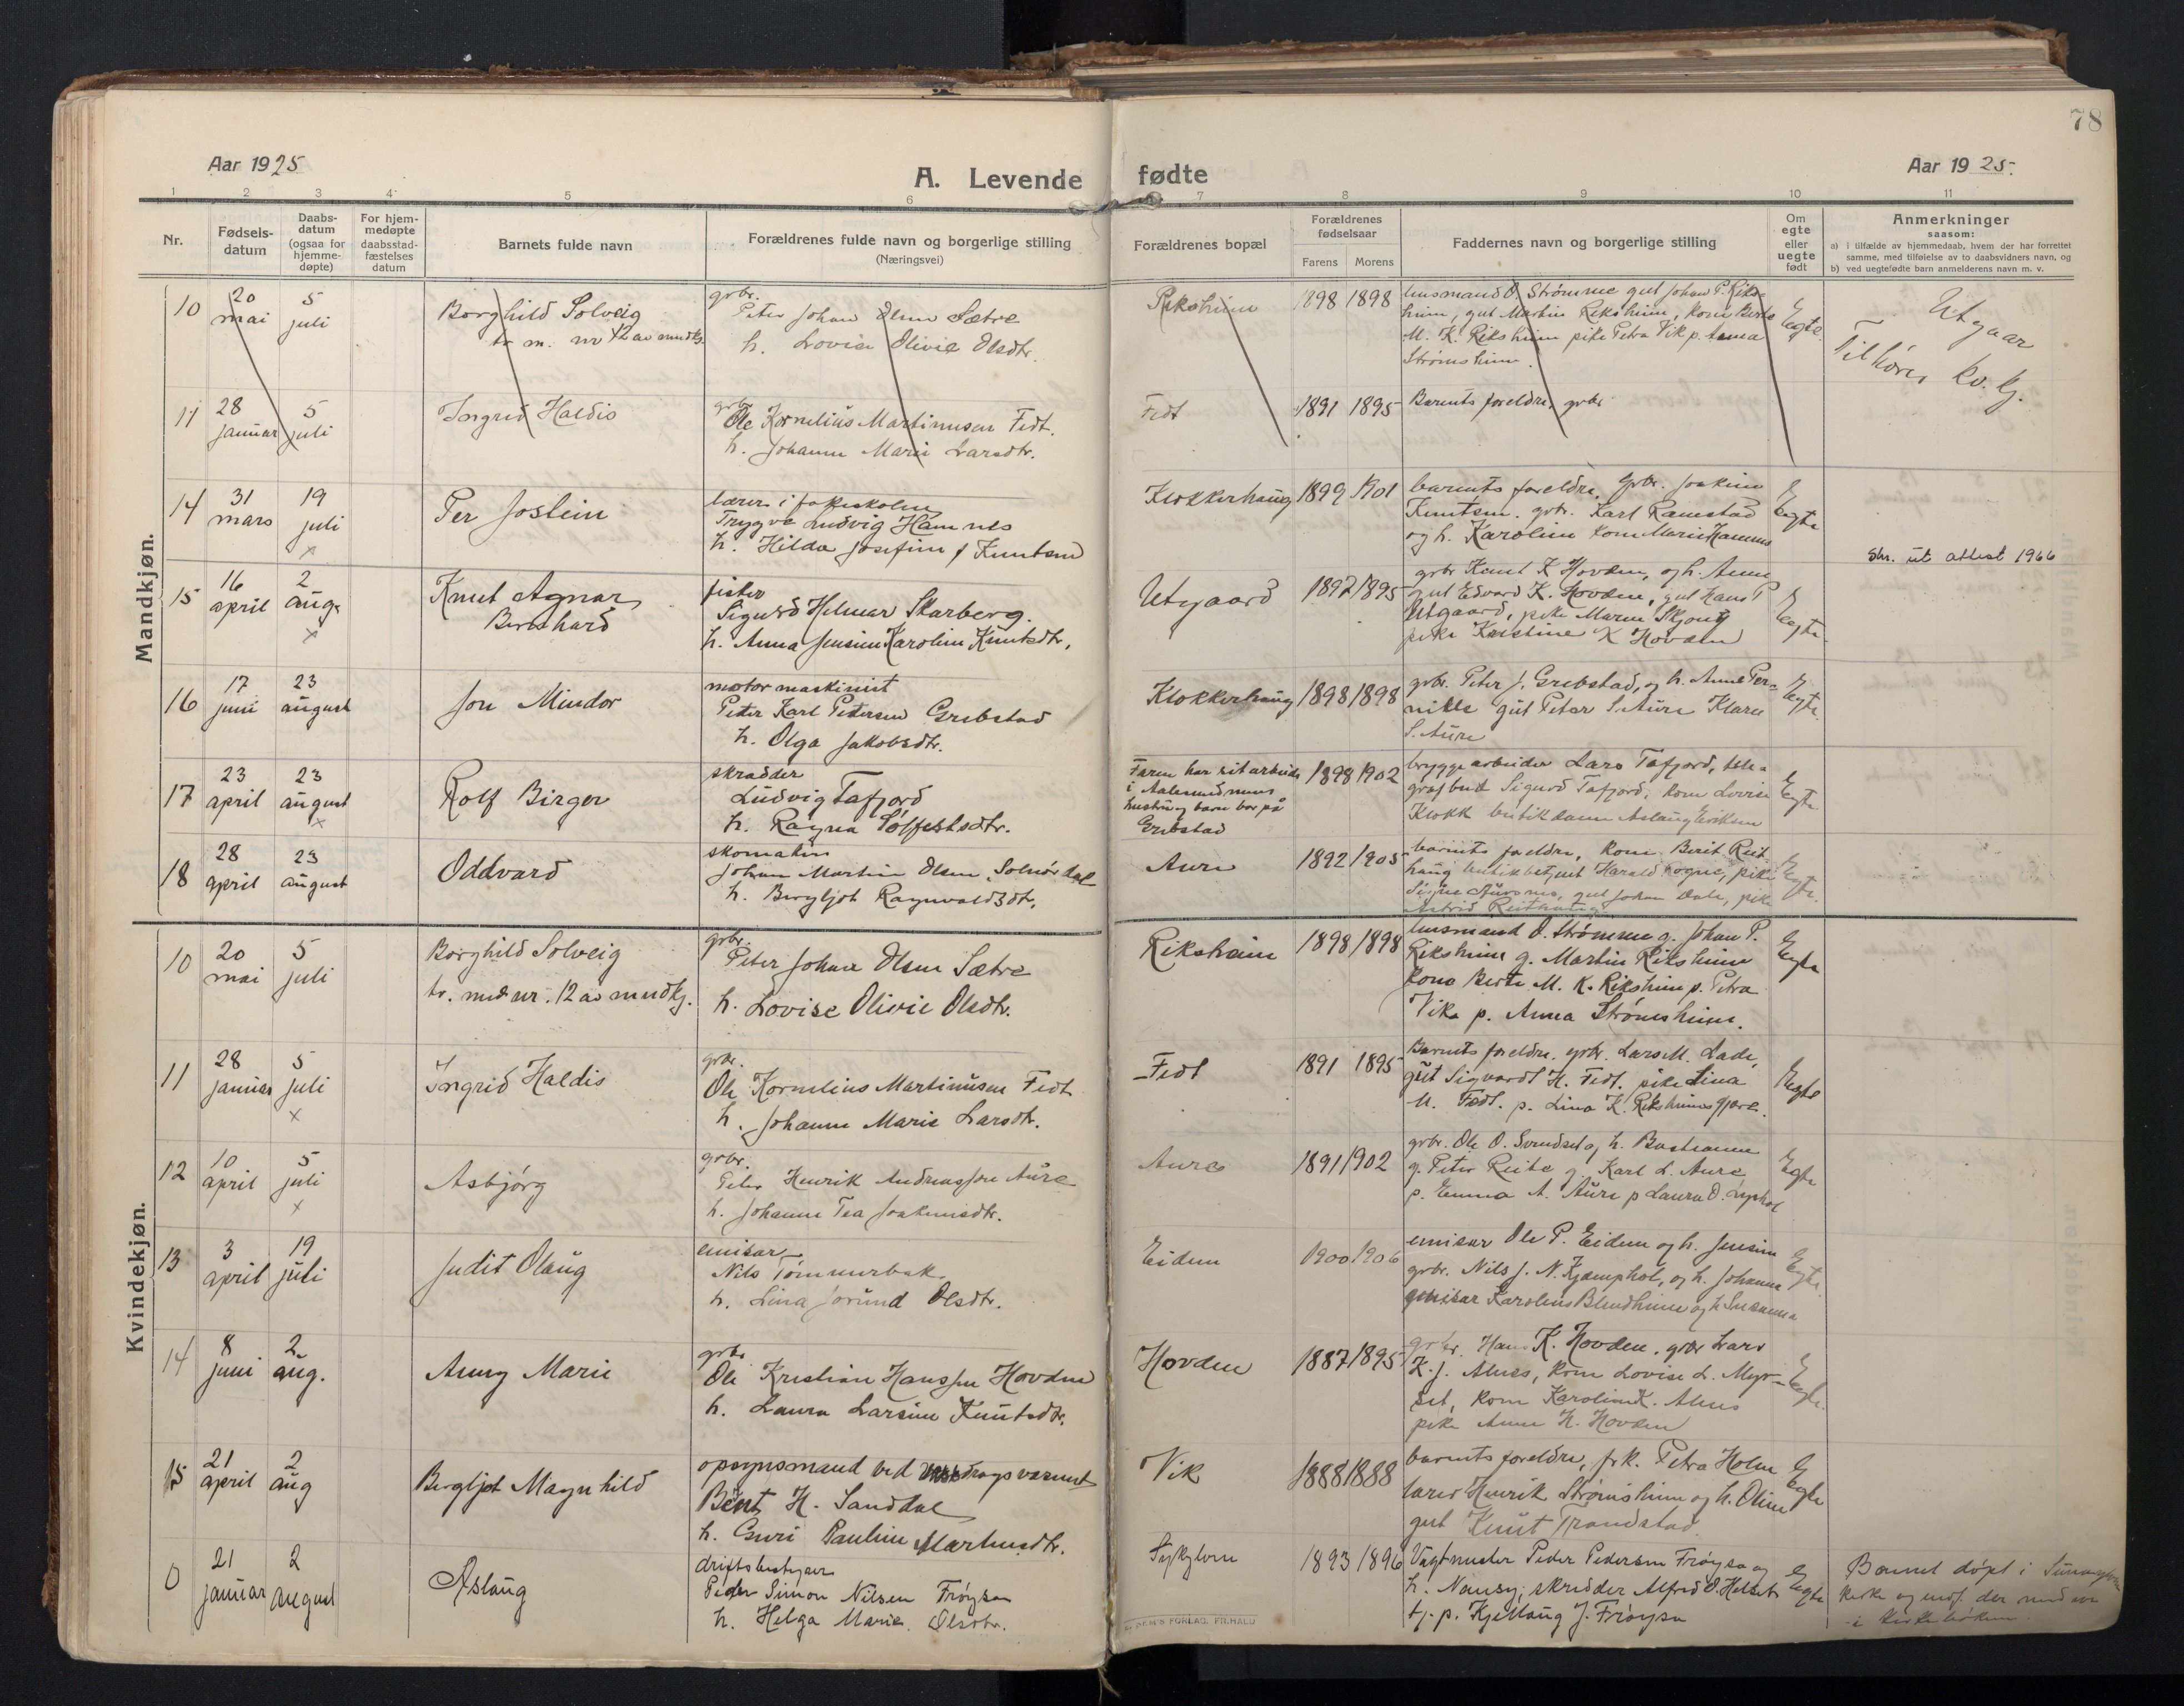 78
Aar 1925
A. Levende fødte
Aar 1925.
1 2 3 4 5 6 7 8 9 10 11
Nr.
Fødsels-
datum
Daabs-
datum
(ogsaa for
hjemme-
døpte)
For hjem-
medøpte
daabsstad-
fæstelses
datum
Barnets fulde navn
Forældrenes fulde navn og borgerlige stilling
(Næringsvei)
Forældrenes bopæl
Forældrenes
fødselsaar
Farens Morens
Faddernes navn og borgerlige stilling
Om
egte
eller
uegte
født
Anmerkninger
saasom:
a) i tilfælde av hjemmedaab, hvem der har forrettet
samme, med tilføielse av to daabsvidners navn, og
b) ved uegtefødte barn anmelderens navn m. v.
Mandkjøn.
10
20 mai
5 juli
Borghild Solveig
tv. m. nr 12 av mndkj.
grbr.
Peter Johan Olsen Sætre
h. Lovise Olivie Olsdtr.
Riksheim
1898 1898
husmand O. Strømme gut Johan P. Riks-
heim, gut Martin Riksheim, kone Berte
M. K. Riksheim pike Petra Vik p. Anna
Strømsheim.
Egte.
Utgaar
Tilhører kv. kj.
11
28 januar
5 juli
Ingrid Haldis
grbr.
Ole Kornelius Martinusen Fedt.
h. Johanne Marie Larsdtr.
Fedt
1891 1895
Barnets foreldre, grbr.
14
31 mars
19 juli
x
Per Jostein
lærer i folkeskolen
Trygve Ludvig Hamnes
h. Hilda Josefine f. Knutsen
Klokkerhaug
1899 1901
barnets foreldre, grbr. Joakim
Knutsen. grbr. Karl Ramstad
og h. Karoline kone Marie Hamnes
Egte
Skr. ut attest 1966
15
16 april
2 aug.
x
Knut Agnar
Bernhard
fisker
Sigurd Helmer Skarberg.
h. Anna Jensine Karoline Knutsdtr.
Utgaard
1897 1895
grbr Knut K Hovden, og h. Anne
gut Edvard K. Hovden, gut Hans P
Utgaard, pike Maren Skjong
pike Kristine K Hovden
Egte.
16
17 juni
23 august
Jon Mindor
motormaskinist
Peter Karl Petersen Grebstad
h. Olga Jakobsdtr.
Klokkerhaug
1898 1898
grbr. Peter J. Grebstad, og h. Anne Per-
nille gut Peter S. Aure Klare
S. Aure
Egte.
17
23 april
23 august
x
Rolf Birger
skrædder
Ludvig Tafjord
h. Ragna Solfestsdtr.
Faren har sit arbeide
i Aalesund mens
hustru og barn bor på
Grebstad
1898 1902
bryggearbeider Lars Tafjord, tele-
grafbud Sigurd Tafjord, kone Lovise
Klokk butikdame Aslaug Eriksen
Egte
18
28 april
23 august
Oddvard
skomaker
Johan Martin Olsen Solnørdal
h. Bergljot Ragnvaldsdtr.
Aure
1892 1905
barnets foreldre, kone Berit Reit
haug butikbetjent Harald Rogne, pike
Signe, gut Johan Dale, pike
Astrid Reithaug
Egte.
Kvindekjøn.
10
20 mai
5 juli
Borghild Solveig
tv. med nr. 12 av mndkj.
grbr.
Peter Johan Olsen Sætre
h. Lovise Olivie Olsdtr.
Riksheim
1898 1898
husmand O. Strømme g. Johan P.
Riksheim g. Martin Riksheim
kona Berte M. K. Riksheim p. Petra
Vik p. Anna Strømsheim.
Egte
11
28 januar
5 juli
x
Ingrid Haldis
grbr.
Ole Kornelius Martinusen Fedt
h. Johanne Marie Larsdtr.
Fedt
1891 1895
Barnets foreldre. grbr. Lars M. Lade,
gut Sigvardt H. Fedt. pike Lina
M. Fedt. p. Lina K. Riksheimsgjære.
Egte
12
10 april
5 juli
x
Asbjørg
grbr.
Peter Henrik Andreassen Aure
h. Johanne Tea Joakimsdtr.
Aure
1891 1902
grbr. Ole O. Svendset og h. Bastianne
g. Peter Reite g. Karl L. Aure
p. Emma A. Aure p Laura O.
Egte
13
3 april
19 juli
Judit Olaug
emisær
Nils Tømmerbak
h. Lina Jorund Olsdtr.
Eidem
1900 1906
emisær Ole P. Eidem og h. Jensine
grbr. Nils J. N. Kjæmphol, og h. Johanna
emisær Karolius Blindheim og h. Susanna
Egte.
14
8 juni
2 aug.
Anny Marie
grbr.
Ole Kristian Hanssen Hovden
h. Laura Larsine Knutsdtr.
Hovden
1887 1895
grbr. Hans K. Hovden, grbr Lars
K. J. Alnes, kone Lovise L. Myr-
set, kone Karoline K. Alnes
pike Anne H. Hovden
Egte.
15
21 april
2 aug
Bergljot Magnhild
opsynsmand ved Vasdragsvæsenet
Bent H. Sanddal
h. Guri Pauline Martinsdtr.
Vik
1888 1888
barnets foreldre, frk. Petra Holm
lærer Henrik Strømsheim og h. Oline
gut Knut Trandstad.
Egte
0
21 januar
2 august
Aslaug
driftsbestyrer
Peder Simon Nilsen Frøysa
h. Helga Marie Olsdtr.
Sykylven
1893 1896
Vagtmester Peder Pedersen Frøysa og
h. Nansy, skredder Alfred O. Helset
tj. p. Kjellaug J. Frøysa
Egte
Barnet døpt i
kirke og innf. der med nr
i kirkeboken.
SEM'S FORLAG. FR.HALD